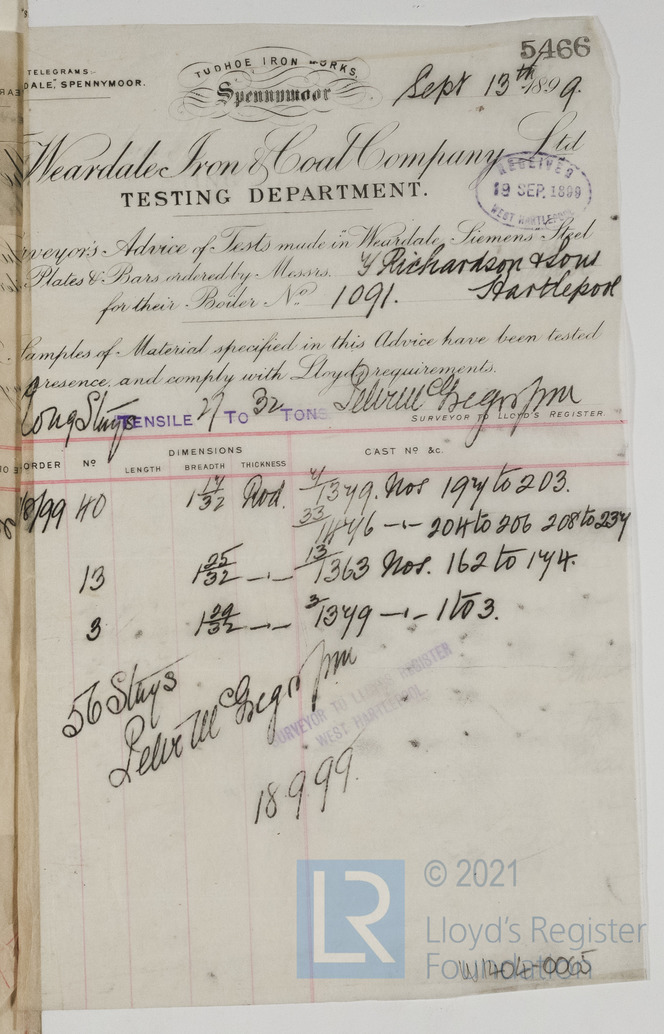 5466
TELEGRAMS:-
DALE, SPENNYMOOR.
TUDHOE IRON WORKS,
Spennymoor
Sept 13th 1899.
Weardale Iron & Coal Company Ltd
TESTING DEPARTMENT.
RECEIVED
19 SEP. 1899
WEST HARTLEPOOL
rveyor's Advice of Tests made in Weardale Siemens Steel
Plates & Bars ordered by Messrs. Richardson & Sons
for their Boiler No. 1091. Hartlepool
Samples of Material specified in this Advice have been tested
presence, and comply with Lloyd's requirements.
Long Stays TENSILE 27 TO 32 TONS
SURVEYOR TO LLOYD'S REGISTER.
ORDER No DIMENSIONS CAST No &c.
LENGTH BREADTH THICKNESS
/99 40 1 17/32 Rod. 7/1379. Nos 197 to 203.
33/1476 -"- 204 to 206 208 to 237
13 1 25/32 -"- 13/1363 Nos. 162 to 174.
3 1 29/32 -"- 3/1379 -"- 1 to 3.
56 Stays
SURVEYOR TO LLOYDS REGISTER
WEST HARTLEPOOL.
18.9.99.
LR
© 2021
Lloyd's Register
Foundation
W1404-0065